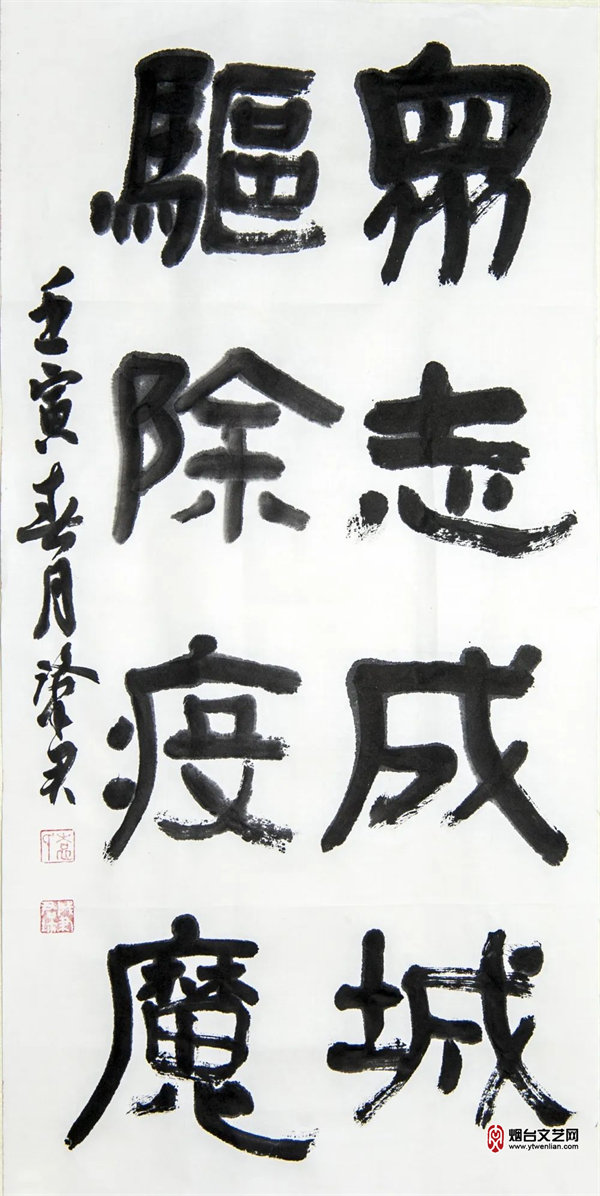 眾志成城
驅除疫魔
壬寅春月肇君
烟台文艺网
www.ytwenlian.com